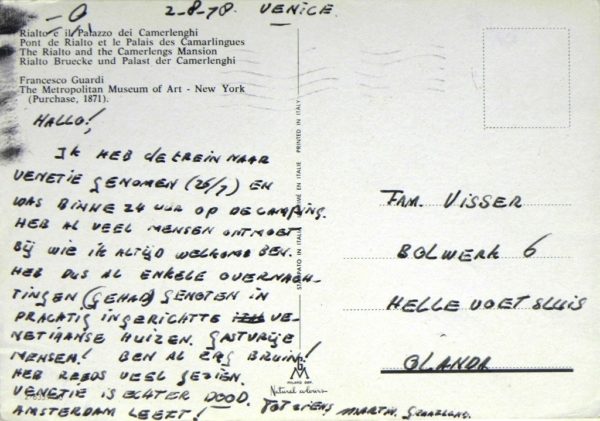 2-8-78. VENICE.
Rialto e il Palazzo dei Camerlenghi
Pont de Rialto et le Palais des Camarlingues
The Rialto and the Camerlengs Mansion
Rialto Bruecke und Palast der Camerlenghi
Francesco Guardi
The Metropolitan Museum of Art - New York
(Purchase, 1871).
HALLO!
IK HEB de TREIN NAAR
VENETIE GENOMEN (26/7) EN
WAS BINNE 24 UUR OP DE CAMPING.
HEB AL VEEL MENSEN ONTMOET
BIJ WIE IK ALTIJD WELKOMB BEN.
HEB DUS AL ENKELE OVERNACH-
TINGEN (GEHAD) GENOTEN IN
PRACHTIG INGERICHTTE VE-
NETIAANSE HUIZEN. GASTVRIJE
MENSEN! BEN AL ERG BRUIN!
HEB REEDS VEEL GEZIEN.
VENETIE IS ECHTER DOOD.
AMSTERDAM LEEFT! TOT ZIENS, MARTIN.
STAMPATO IN ITALIA PRINTED IN ITALY
MILANO
Natural colours
FAM. VISSER
BOLWERK 6
HELLEVOETSLUIS
OLANDA